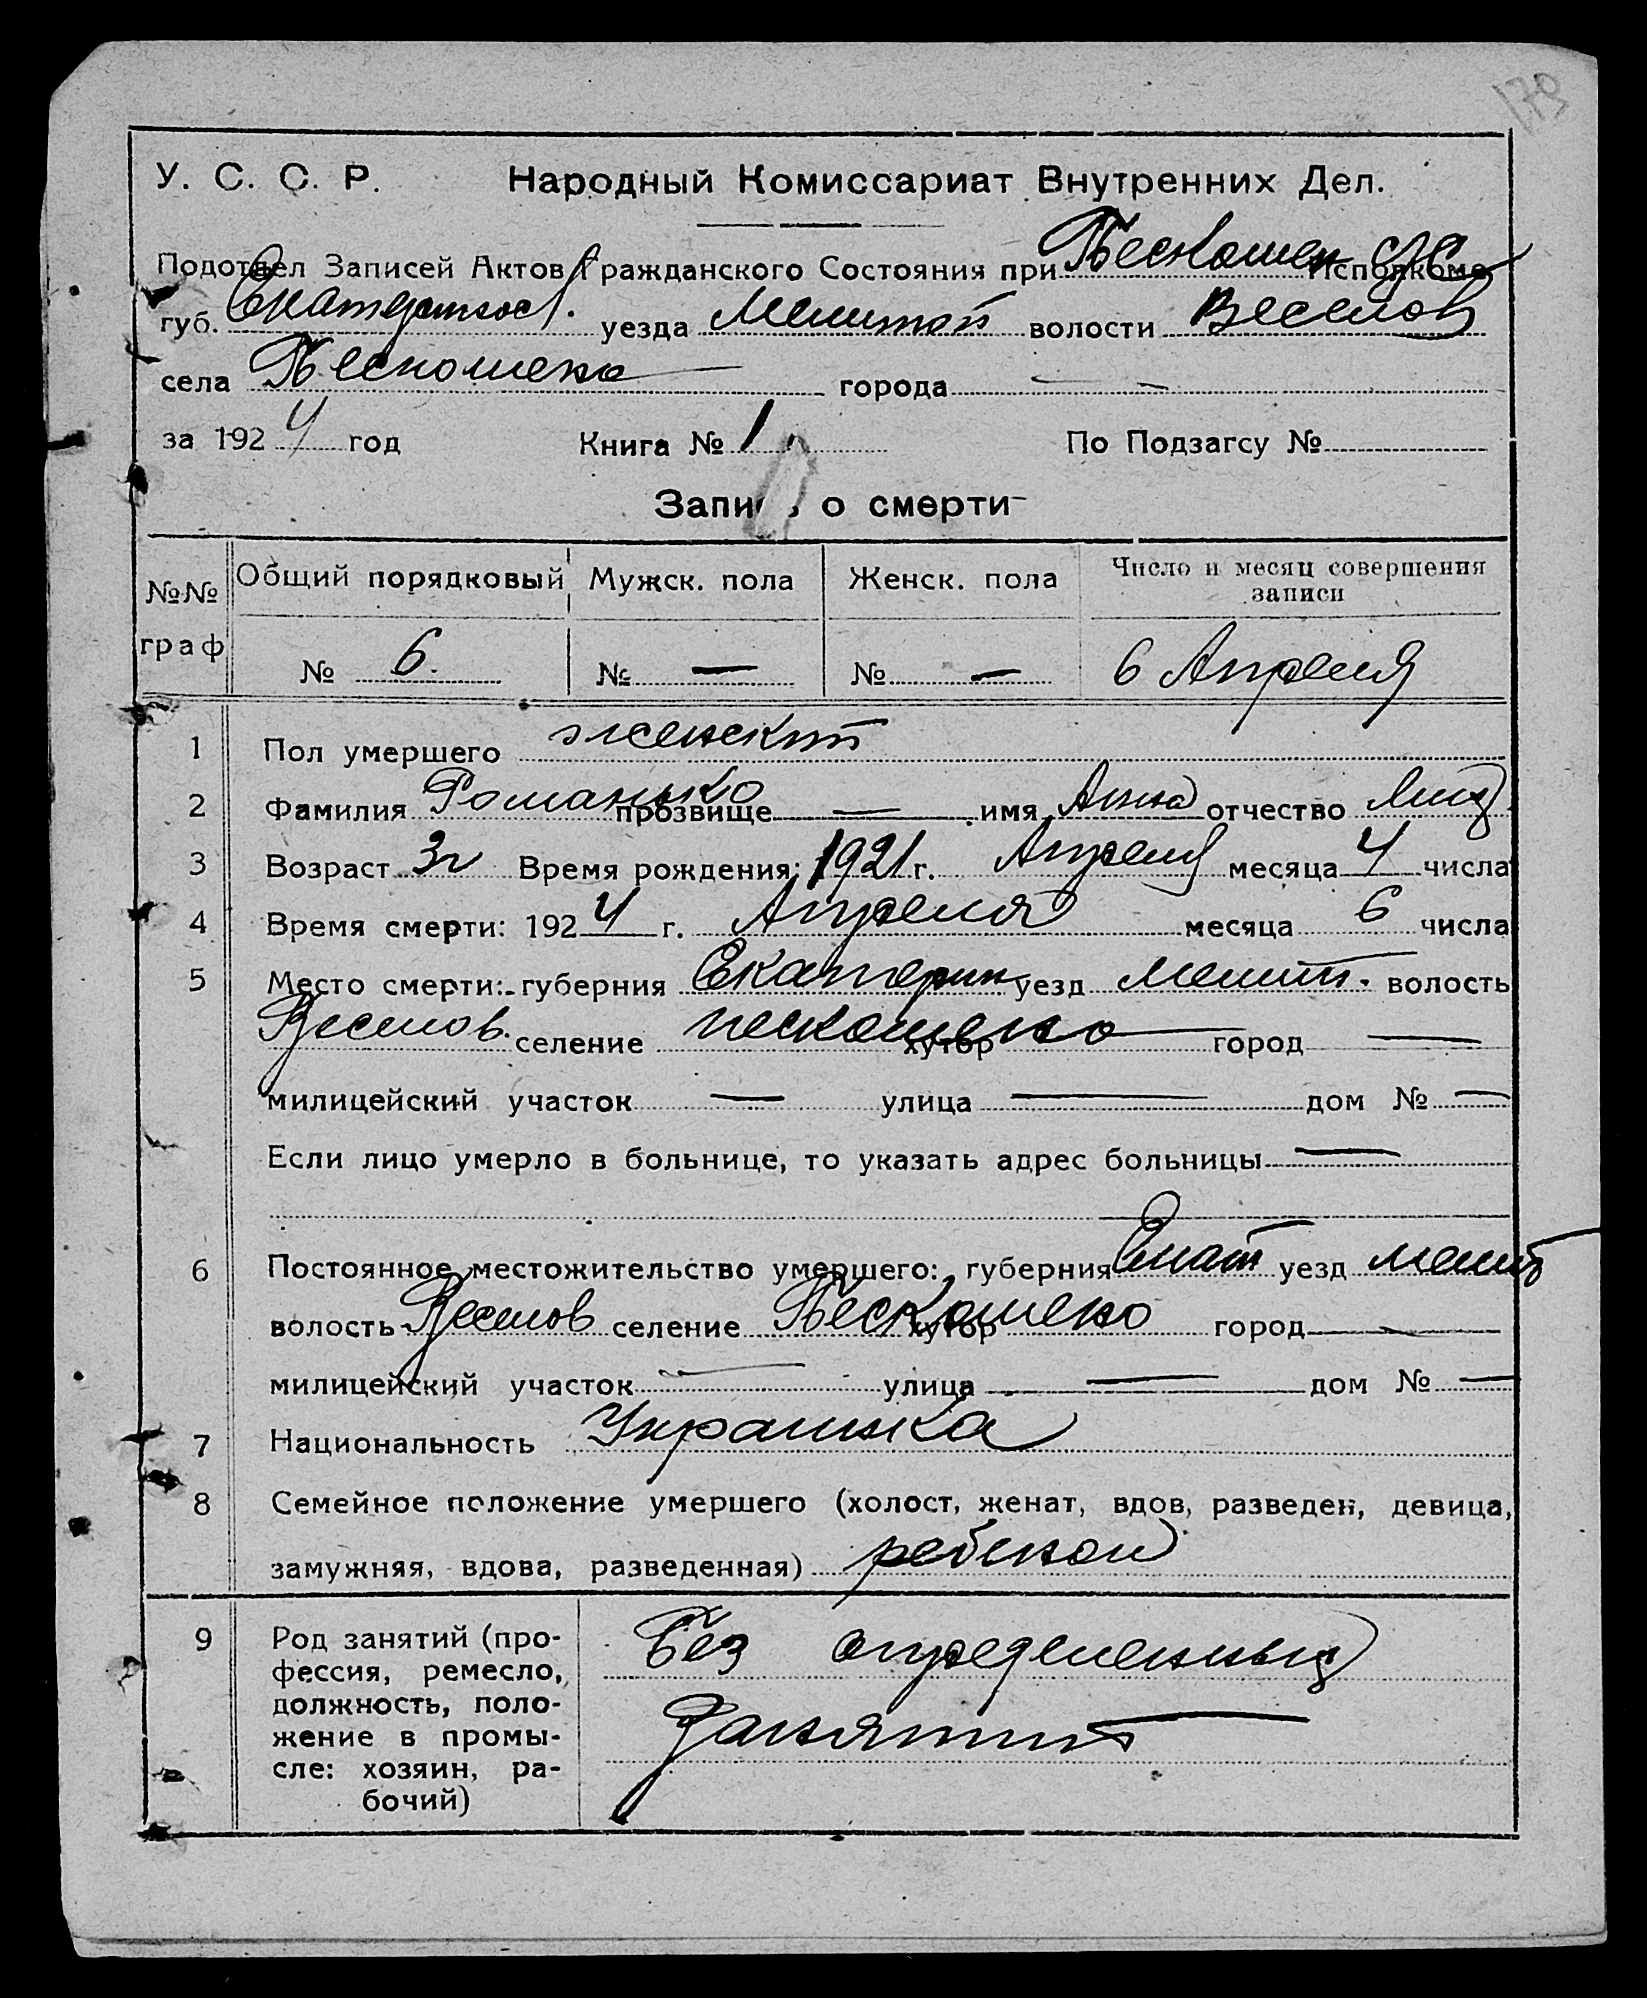 179
У. С. С. Р. Народный Комиссариат Внутренних Дел.
Подотдел Записей Актов Гражданского Состояния при Пескошен с/с Исполкоме
губ. уезда Мелитоп волости Веселов
села Пескошено города —
за 1924 год Книга № 1 По Подзагсу №
Запись о смерти
№№ граф Общий порядковый Мужск. пола Женск. пола Число и месяц совершения записи
№ 6. № — № — 6 Апреля
1 Пол умершего женский
2 Фамилия Романько прозвище — имя Анна отчество
3 Возраст 3 г Время рождения: 1921 г. Апреля месяца 4 числа
4 Время смерти: 1924 г. Апреля месяца 6 числа
5 Место смерти:-губерния Екатерин уезд Мелит. волость
Веселов. селение Пескошено хутор город —
милицейский участок — улица — дом № —
Если лицо умерло в больнице, то указать адрес больницы —
6 Постоянное местожительство умершего: губерния Екат уезд Мелит
волость Веселов селение Пескошено хутор город —
милицейский участок — улица — дом № —
7 Национальность Украинка
8 Семейное положение умершего (холост, женат, вдов, разведен, девица,
замужняя, вдова, разведенная) ребенок
9 Род занятий (про-
фессия, ремесло,
должность, поло-
жение в промы-
сле: хозяин, ра-
бочий)
Без определенных
занятий